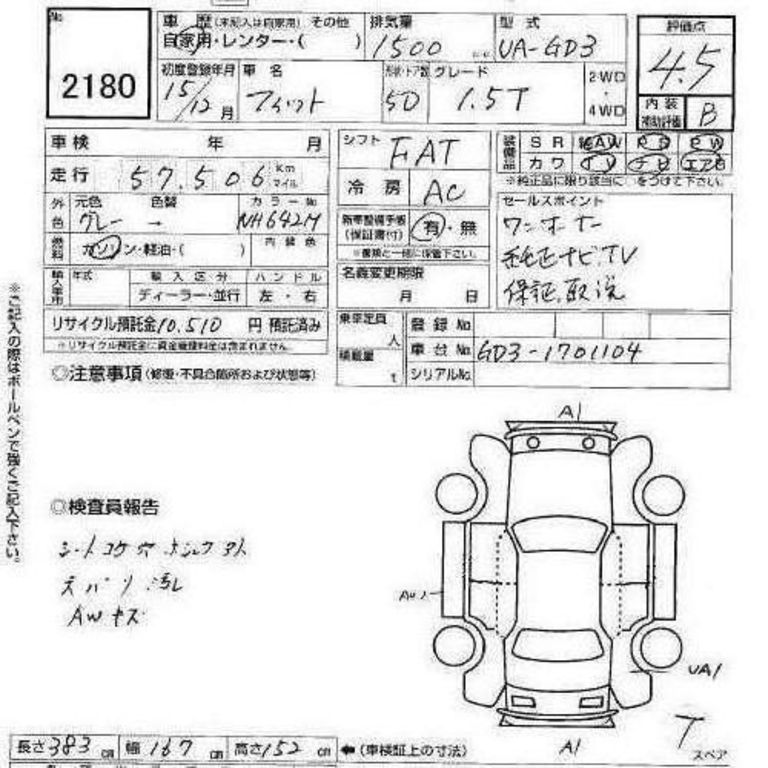 No
2180
車 歴 (未記入は自家用) その他
自家用・レンター・( )
排気量
1500 cc
型 式
UA-GD3
評価点
4.5
初度登録年月
15/12 月
車 名
フィット
形状・ドア数
5D
グレード
1.5T
2WD
・
4WD
内 装
補助評価
B
車 検 年 月
走 行 57,506 Km
マイル
外 色
元色 色替 カラーNo
グレー → NH642M
燃料
ガソリン・軽油・( )
内 装 色
輸入車用
年式
輸 入 区 分
ディーラー・並行
ハ ン ド ル
左 ・ 右
リサイクル預託金 10,510 円 預託済み
※リサイクル預託金に資金管理料金は含まれません。
シフト
FAT
冷 房
AC
新車整備手帳
(保証書付)
有・無
※書類と一緒に保管下さい。
名義変更期限
月 日
装備品
S R 純AW P S P W
カ ワ TV ナビ エアB
※純正品に限り該当に○をつけて下さい。
セールスポイント
ワンオーナー
純正ナビ.TV
保証.取説
乗車定員
人
積載量
t
登 録 No
車 台 No GD3-1701104
シリアルNo
※ご記入の際はボールペンで強くご記入下さい。
◎注意事項(修復・不具合箇所および状態等)
◎検査員報告
シートコゲ穴
汚レ
AWキズ
A1
UA1
A1
T
スペア
長さ 383 cm 幅 167 cm 高さ 152 cm ←(車検証上の寸法)